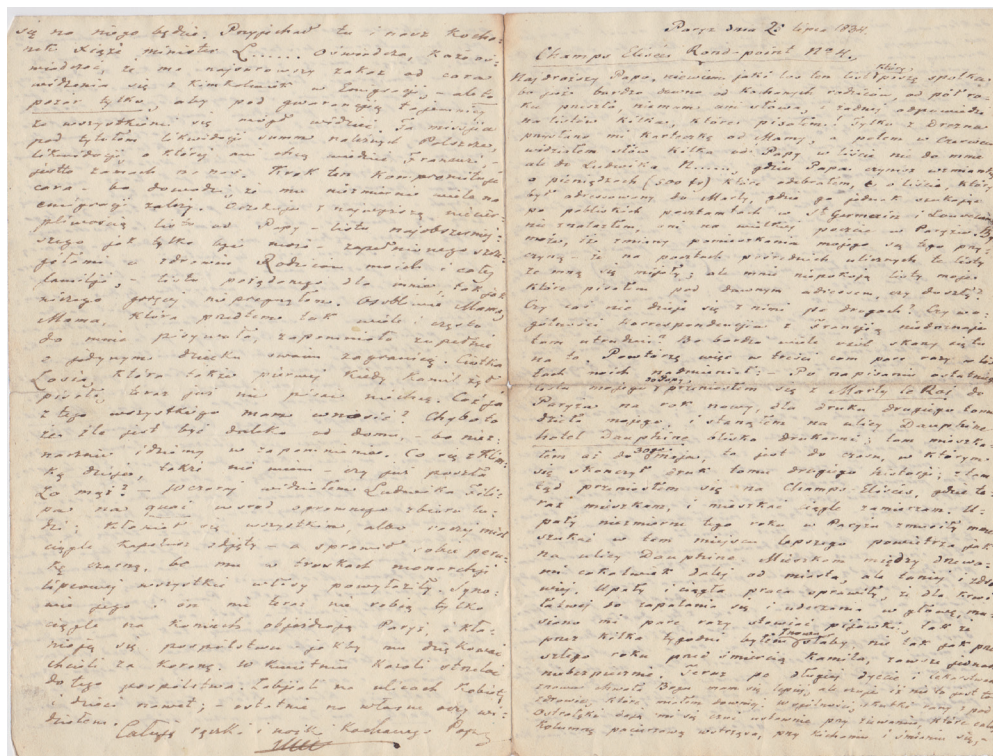 są na niego będzie. Przyjechał tu i nasz Kocha-
nek Xiąże minister L...... Oświadcza, każe oś-
wiadczać, że ma najsurowszy zakaz od cara
widzenia się z kimkolwiek w Emigracji, – ale to
pozor tylko, aby pod gwarancją tajemnicy
ze wszystkiemi się mógł widzieć. Ta missija
pod tytułem likwidacji summ należnych Polszcze,
likwidacji, o której ani chcą wiedzieć Francuzi –
jestto zamach na nas. Krok ten kompromituje
cara – bo dowodzi że mu niezmiernie wiele na
emigracji zależy. Oczekuję z największą niecier-
pliwością listu od Papy – listu najobszerniej-
szego jak tylko być może – zapełnionego szcze-
gółami o zdrowiu Rodziców moich i całej
familiji, – listu pożądanego dla mnie, tak jak
niczego goręcej niepragnąłem. Osobliwie Mama,
Mama, która przedtem tak wiele i często
do mnie pisywała, zapomniała zupełnie
o jedynym dziecku swoim zagranicą. Ciotka
Łosia, która także pierwej kiedy Kamil żył
pisała, teraz już nie pisze niechcę. Cóż ja
z tego wszystkiego mam wnosić? Chyba to
że źle jest być daleko od domu, – bo niez-
nacznie idziemy w zapomnienie. Co się z Klim-
ką dzieje, także nie wiem – czy już poszła
za mąż? – Wczoraj widziałem Ludwika Fili-
pa na quai wsrod ogromnego zbioru lu-
dzi; kłaniał się wszystkim, albo raczej miał
ciągle kapelusz zdjęty – a sprawił sobie peru-
kę czarną, bo mu w troskach monarchji
lipcowej wszystkie włosy powyłaziły. Syno-
wie jego i on nic teraz nie robią tylko
ciągle na koniach objeżdzają Paryż i kła-
niają się pospolstwu – jakby mu dziękować
chcieli za Koronę. W Kwietniu kazali strzelać
do tego pospólstwa. Zabijali na ulicach kobiety
i dzieci nawet; – ostatnie na własne oczy wi-
działem. Całuję rączki i nóżki Kochanego Papy
Paryż dnia 28 lipca 1834.
Champs Elisées Rond-point No 4.
Najdroższy Papo, niewiem jaki los ten list który piszę spotka:
bo już bardzo dawno od kochanych rodziców, od pół ro-
ku przeszło, niemam ani słowa i żadnej odpowiedzi
na listów kilka, które pisałem! Tylko z Drezna
przysłano mi karteczkę od Mamy, a potem w Czerwcu
widziałem słów kilka od Papy w liście nie do mnie
ale do Ludwika N......, gdzie Papa czynisz wzmiankę
o pieniądzach (500 f) które odebrałem, o liście, który
był adresowany do Marly, gdzie go jednak szukając
po pobliskich pocztamtach w St Germain i Louveciennes
nie znalazłem, ani na wielkiej poczcie w Paryżu. Być
może, że zmiany pomieszkania mojego są tego przy-
czyną – że na pocztach pośrednich ulicznych te listy
ze mną się mijały; ale mnie niepokoją listy moje
które pisałem pod dawnym adresem, czy doszły?
Czy coś nie dzieje się z niemi po drogach? Czy wo-
gólności korrespondencija z Francją niedoznaje
tam utrudnień? Bo bardzo wiele osób skarży się tu
na to. Powtórzę więc w treści com parę razy w lis-
tach moich nadmieniał: – Po napisaniu ostatniego
listu mojego przeniosłem się z Marly le Roi do
Paryża na rok nowy, dla druku drugiego tomu
dzieła mojego; i stanąłem na ulicy Dauphine
hotel Dauphine blisko drukarni; tam mieszka-
łem aż do maja, to jest do czasu, w którym
się skończył druk tomu drugiego historji; ztam-
tąd przeniosłem się na Champs-Elisées, gdzie te-
raz mieszkam, i mieszkać ciągle zamierzam. U-
pały niezmierne tego roku w Paryżu zmusiły mnie
szukać w tem miejscu lepszego powietrza jak
na ulicy Dauphine. Mieszkam między drzewa-
mi cokolwiek dalej od miasta, ale taniej i zdro-
wiej. Upały i ciągła praca sprawiły, że dla krwi
łatwej do zapalania się i uderzania w głowę, mu-
siano mi parę razy stawiać pijawki, tak że
przez kilka tygodni byłem znowu słaby, nie tak jak prze-
szłego roku przed śmiercią Kamila, zawsze jednak
niebezpiecznie. Teraz po długiej dyecie i lekarstwach
znowu chwała Bogu mam się lepiej, ale czuję iż nie to jest to
zdrowie, które miałem dawniej. Wogólności, skutki rany pod
Ostrołęką dają mi się czuć
kolumnę pacierzową wstrząsa, przy kichaniu i śmianiu się, –